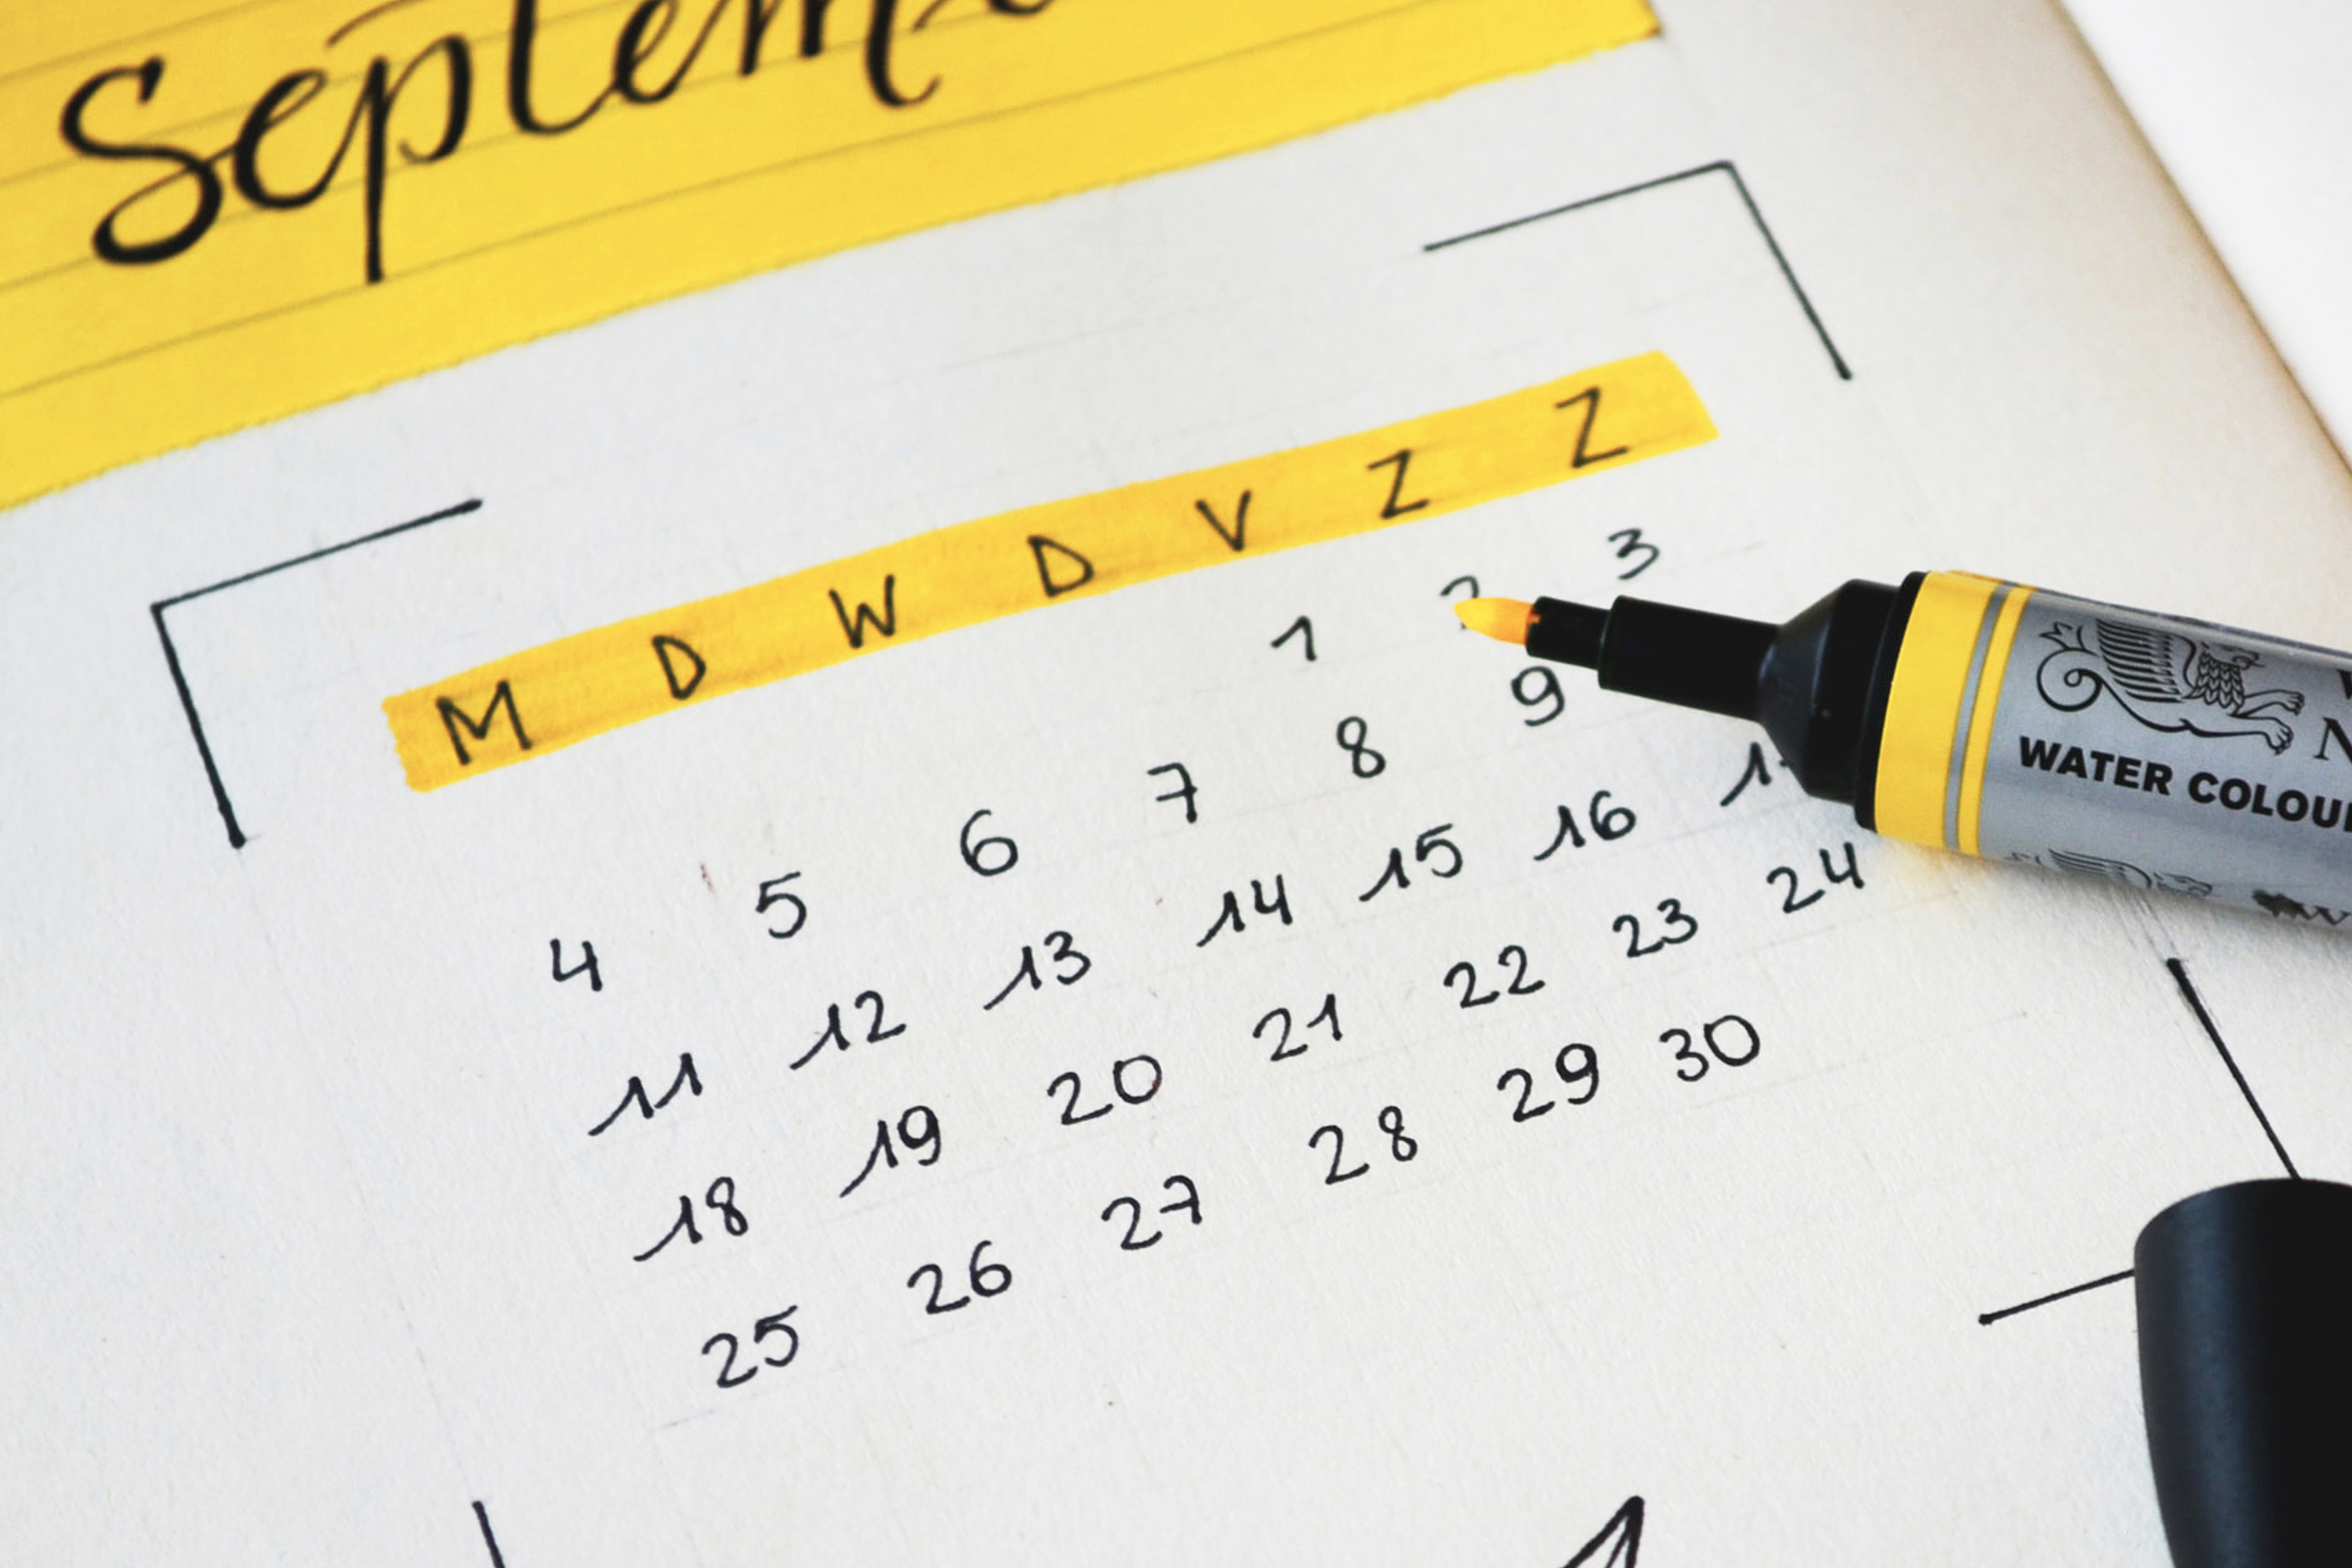 Septem
M D W D V Z Z
1 2 3
4 5 6 7 8 9
11 12 13 14 15 16
18 19 20 21 22 23 24
25 26 27 28 29 30
WATER COLOU